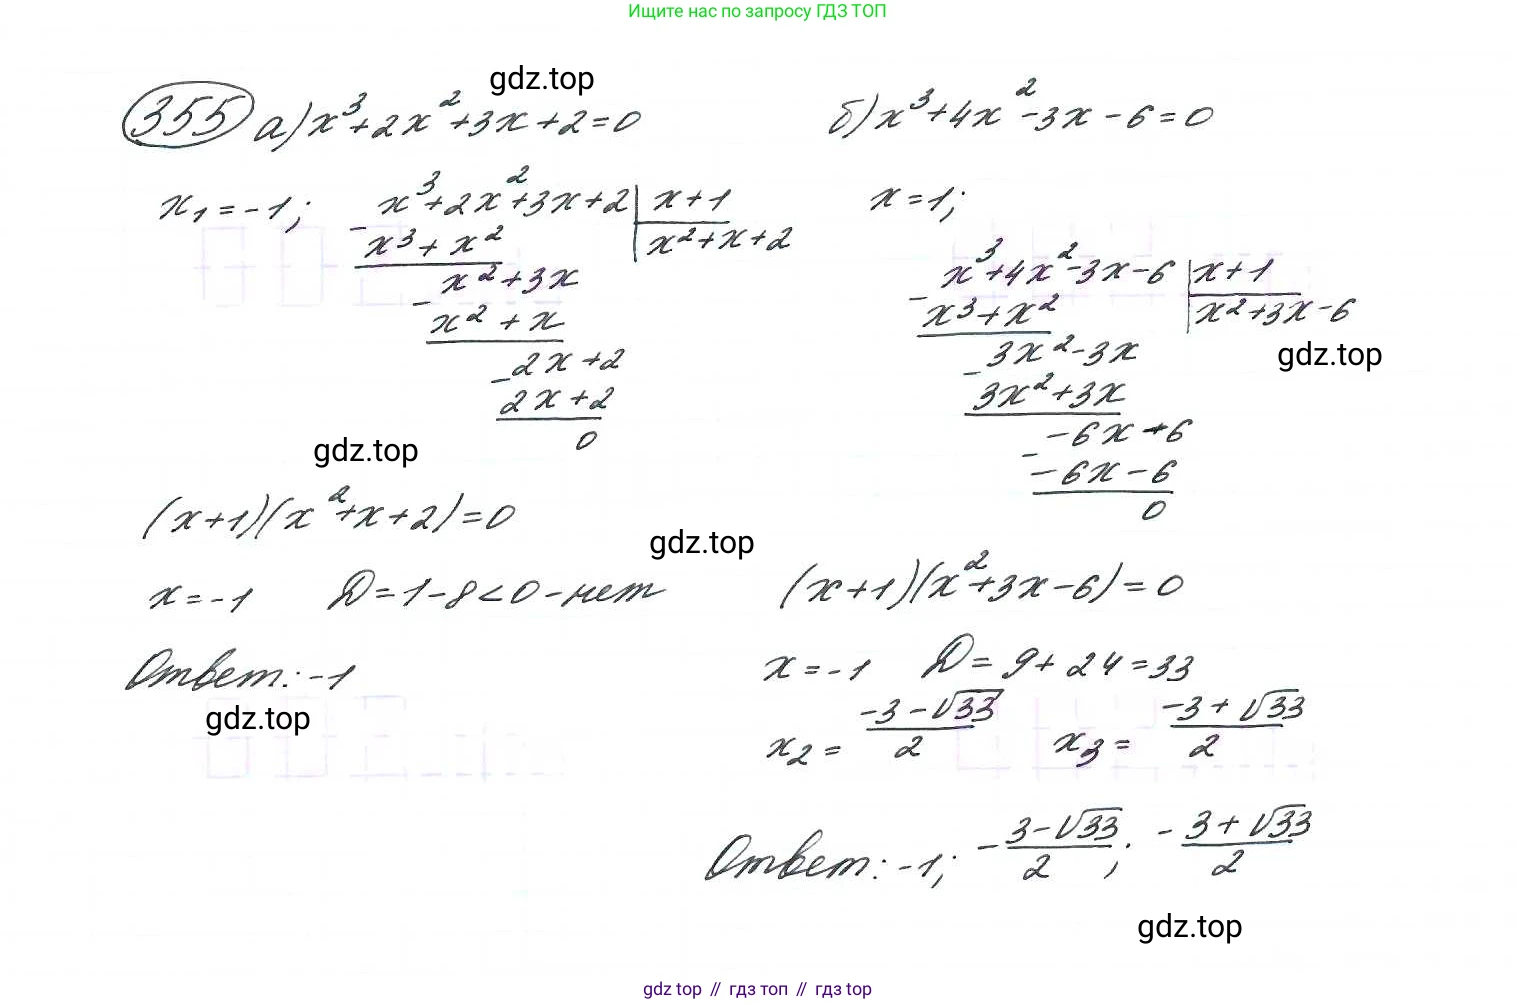 Ищите нас по запросу ГДЗ ТОП
gdz.top
355 а) x³+2x²+3x+2=0
x₁=-1; x³+2x²+3x+2 | x+1
- x³+x² | x²+x+2
x²+3x
- x²+x
2x+2
- 2x+2
0
gdz.top
(x+1)(x²+x+2)=0
x=-1 D=1-8<0-нет
Ответ: -1
gdz.top
б) x³+4x²-3x-6=0
x=1;
x³+4x²-3x-6 | x+1
- x³+x² | x²+3x-6
gdz.top
3x²-3x
- 3x²+3x
-6x-6
- -6x-6
0
gdz.top
(x+1)(x²+3x-6)=0
x=-1 D=9+24=33
x₂= (-3-√33)/2 x₃= (-3+√33)/2
Ответ: -1; -(3-√33)/2; -(3+√33)/2
gdz.top
gdz top // гдз топ // gdz top